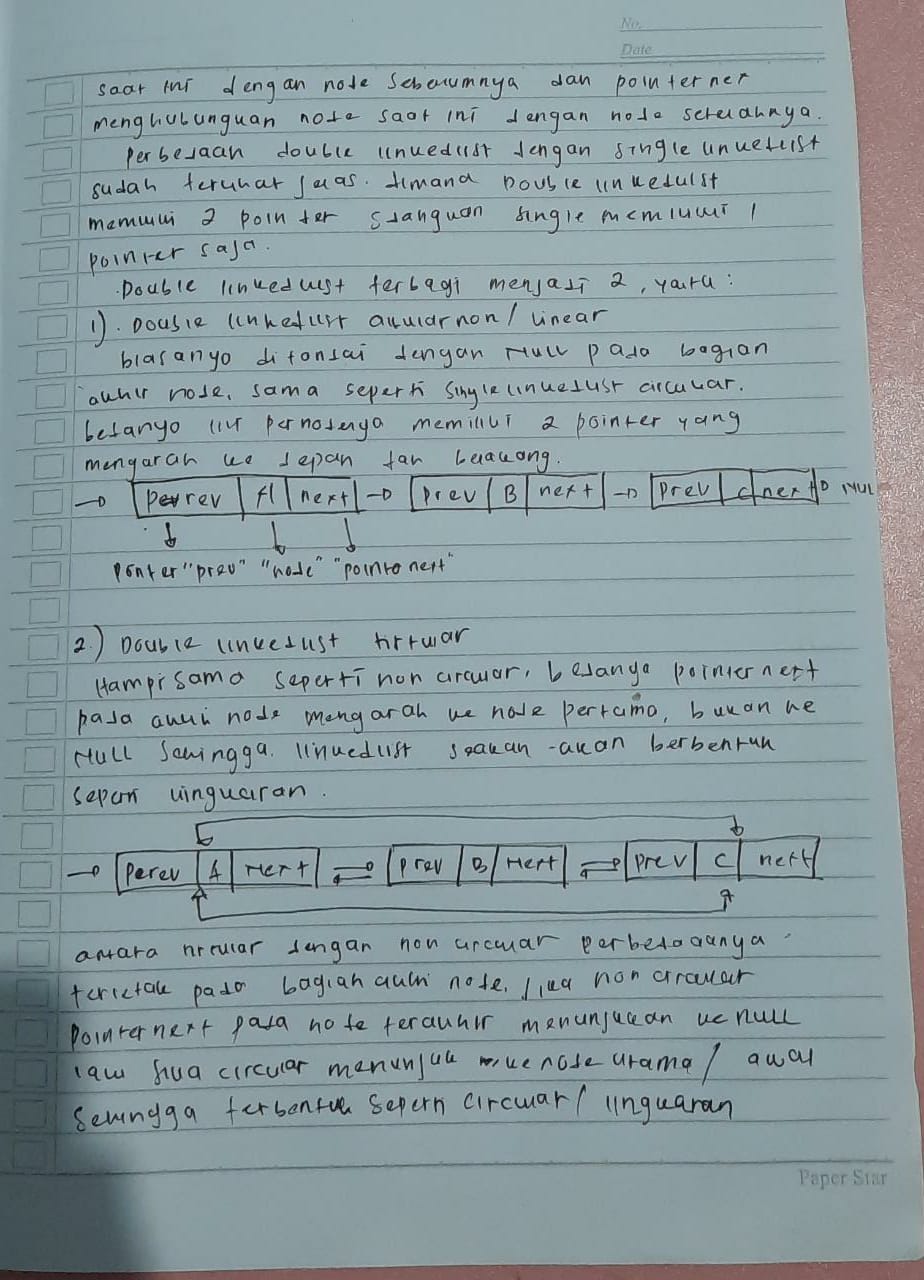 No.
Date
saat ini dengan node sebelumnya dan pointernext
menghubungkan node saat ini dengan node setelahnya.
Perbedaan double linkedlist dengan single linkedlist
sudah terlihat jelas. dimana Double linkedlist
memiliki 2 pointer sedangkan single memiliki 1
pointer saja.
Double linkedlist terbagi menjadi 2, yaitu:
1). Double linkedlist non / linear
biasanya ditandai dengan NULL pada bagian
akhir node, sama seperti single linkedlist circular.
bedanya list per nodenya memiliki 2 pointer yang
mengarah ke depan dan belakang.
prev A next prev B next prev C next NUL
Pointer "prev" "node" "pointo next"
2.) Double linkedlist
Hampir sama seperti non circular, bedanya pointer next
pada akhir node mengarah ke node pertama, bukan ke
NULL sehingga linkedlist seakan-akan berbentuk
seperti lingkaran.
Perev A Next Prev B Next prev C next
antara circular dengan non circular perbedaaanya
terletak pada bagian akhir node, jika non circular
Pointer next pada node terakhir menunjukan ke null
lalu jika circular menunjuk ke node utama / awal
Sehingga terbentuk seperti circular / lingkaran
Paper Star